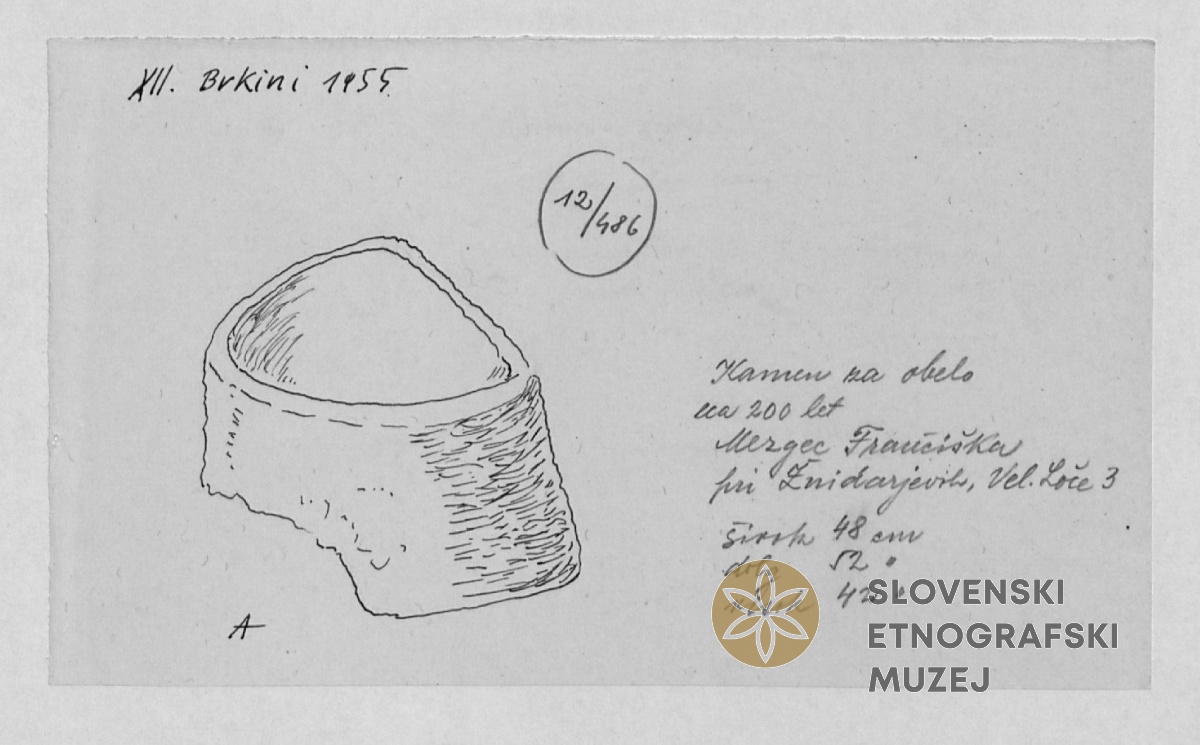 XII. Brkini 1955
12/486
Kamen za obelo
cca 200 let
Mezgec Frančiška
pri Žnidarjevih, Vel. Loče 3
širok 48 cm
dolg 52 "
42 "
A
SLOVENSKI
ETNOGRAFSKI
MUZEJ